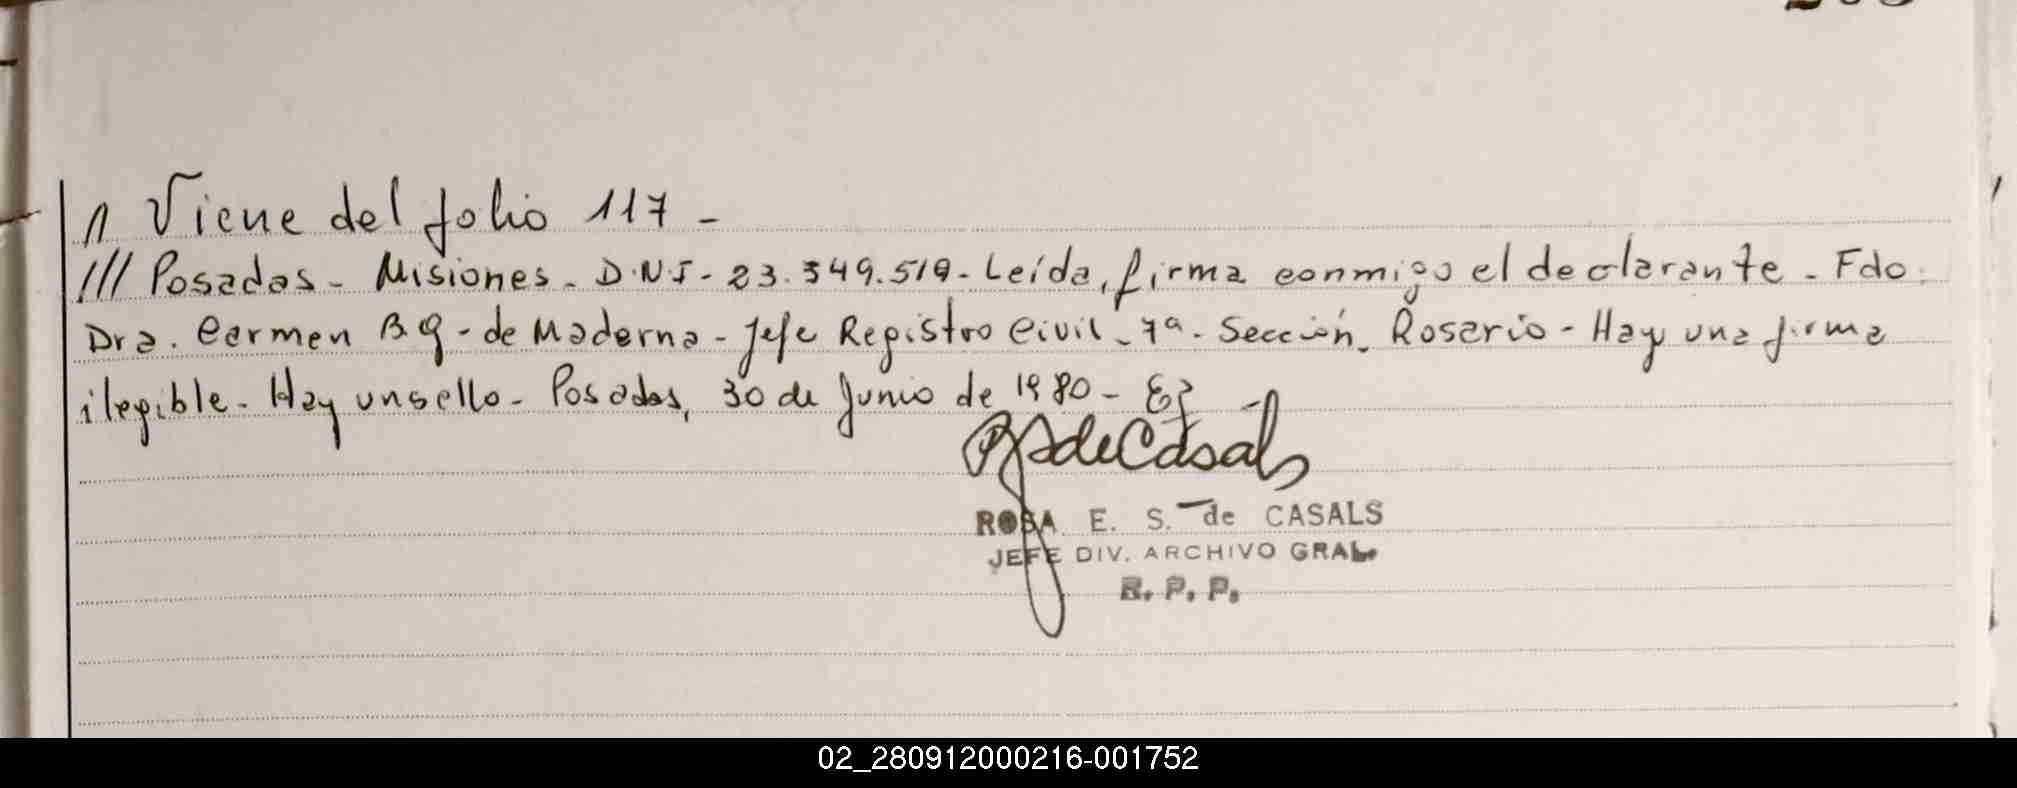 // Viene del folio 117 -
/// Posadas - Misiones - D.N.I - 23.349.519 - Leída, firma conmigo el declarante - Fdo.
Dra. Carmen B. G - de Maderna - Jefe Registro Civil - 7ª - Sección - Rosario - Hay una firma
ilegible - Hay un sello - Posadas, 30 de Junio de 1980 -
de Casals
ROSA E. S. de CASALS
JEFE DIV. ARCHIVO GRAL.
R. P. P.
02_280912000216-001752